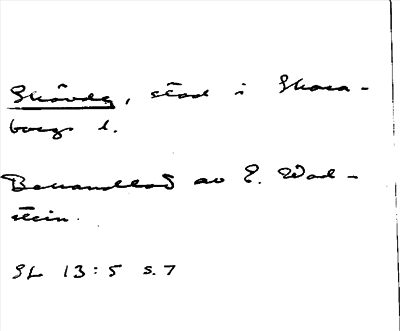 Skövde, stad i Skara-
borgs l.
Behandlad av E. Wad-
stein.
GL 13:5 s. 7